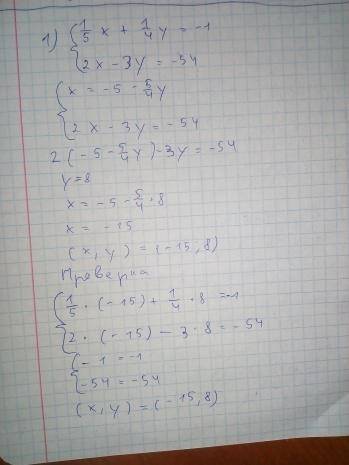 1) { 1/5 x + 1/4 y = -1
2x - 3y = -54
{ x = -5 - 5/4 y
2x - 3y = -54
2(-5 - 5/4 y) - 3y = -54
y = 8
x = -5 - 5/4 · 8
x = -15
(x, y) = (-15; 8)
Проверка
{ 1/5 · (-15) + 1/4 · 8 = -1
2 · (-15) - 3 · 8 = -54
{ -1 = -1
-54 = -54
(x, y) = (-15; 8)